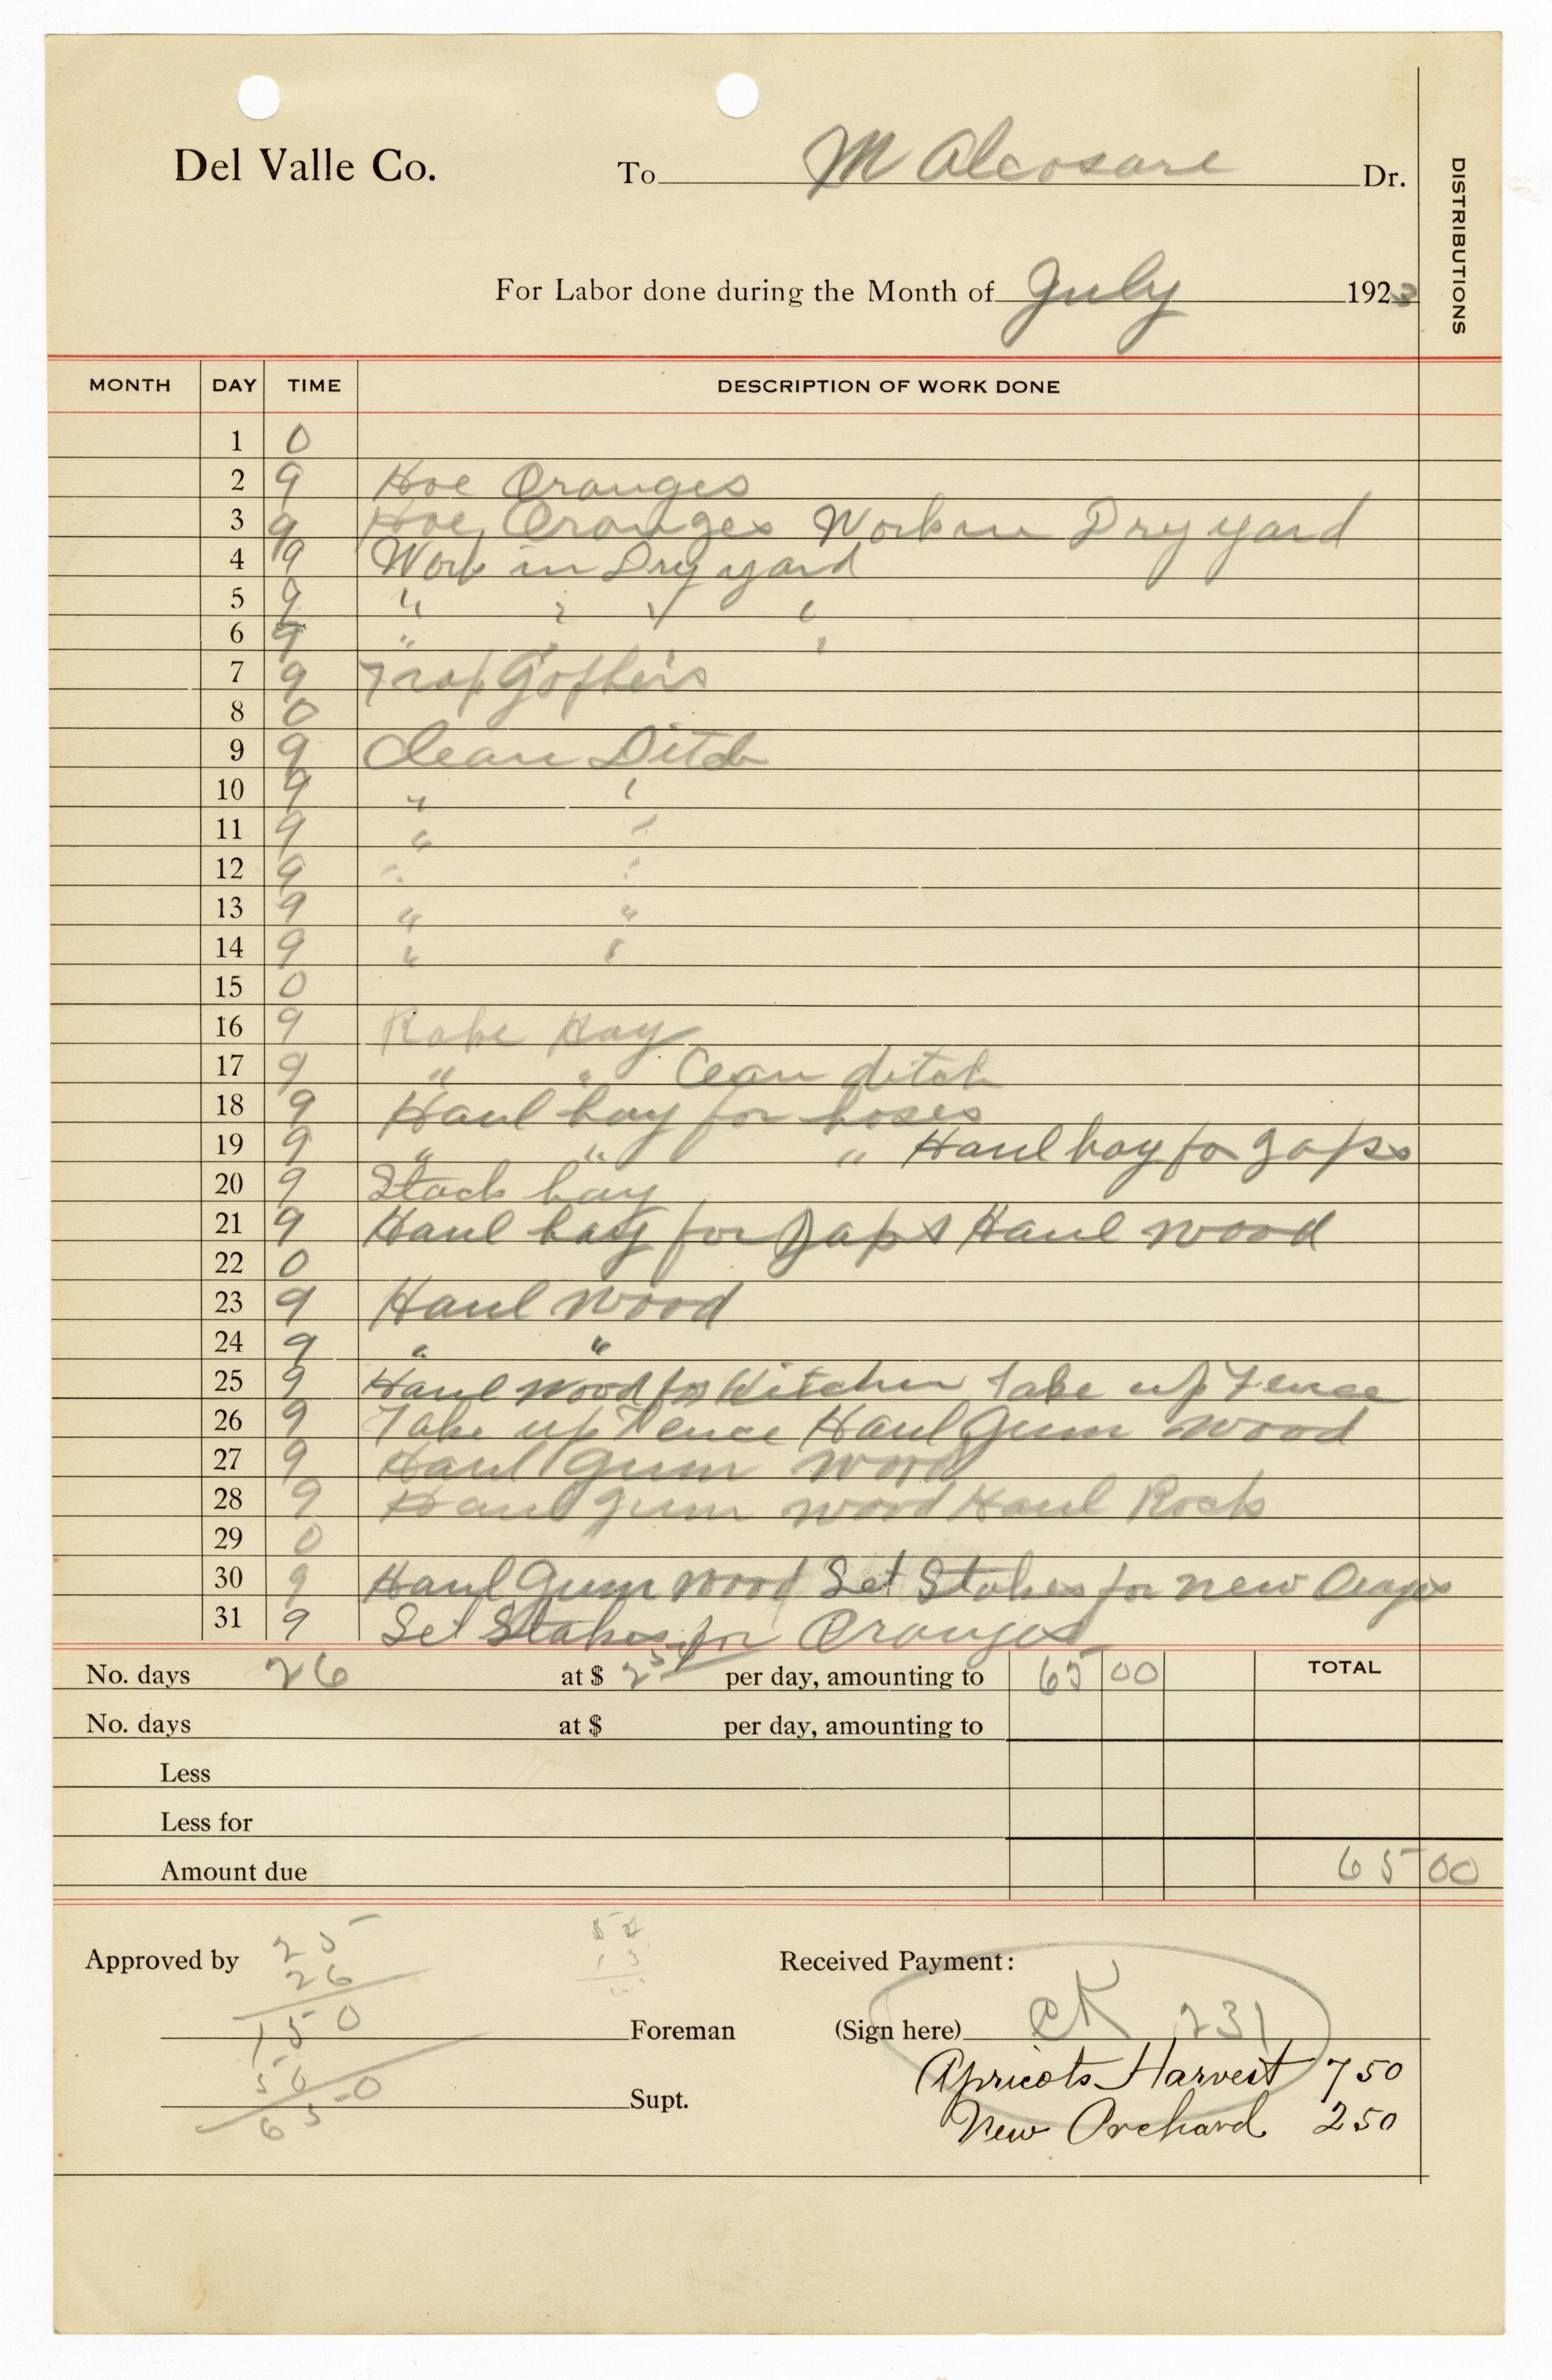 Del Valle Co. To M Alcosare Dr.
DISTRIBUTIONS
For Labor done during the Month of July 1923
MONTH DAY TIME DESCRIPTION OF WORK DONE
1 0
2 9 Hoe Oranges
3 9 Hoe Oranges Work in Dry yard
4 9 Work in Dry yard
5 9 " " " "
6 9 " " "
7 9 Trap Gophers
8 0
9 9 Clean Ditch
10 9 " "
11 9 " "
12 9 " "
13 9 " "
14 9 " "
15 0
16 9 Rake Hay
17 9 " " Cean ditch
18 9 Haul hay for hoses
19 9 " " " Haul hay for Japs
20 9 Stack hay
21 9 Haul hay for Japs Haul wood
22 0
23 9 Haul wood
24 9 " "
25 9 Haul wood for Kitchen Take up Fence
26 9 Take up Fence Haul Gum wood
27 9 Haul Gum wood
28 9 Haul Gum wood Haul Rock
29 0
30 9 Haul Gum wood Set Stakes for new
31 9 Set Stakes for Oranges
No. days 26 at $ 2 50 per day, amounting to 65 00 TOTAL
No. days at $ per day, amounting to
Less
Less for
Amount due 65 00
Approved by Received Payment:
25
26
150
50
650
Foreman (Sign here) CK 231
Apricots Harvest 7 50
Supt.
New Orchard 2 50